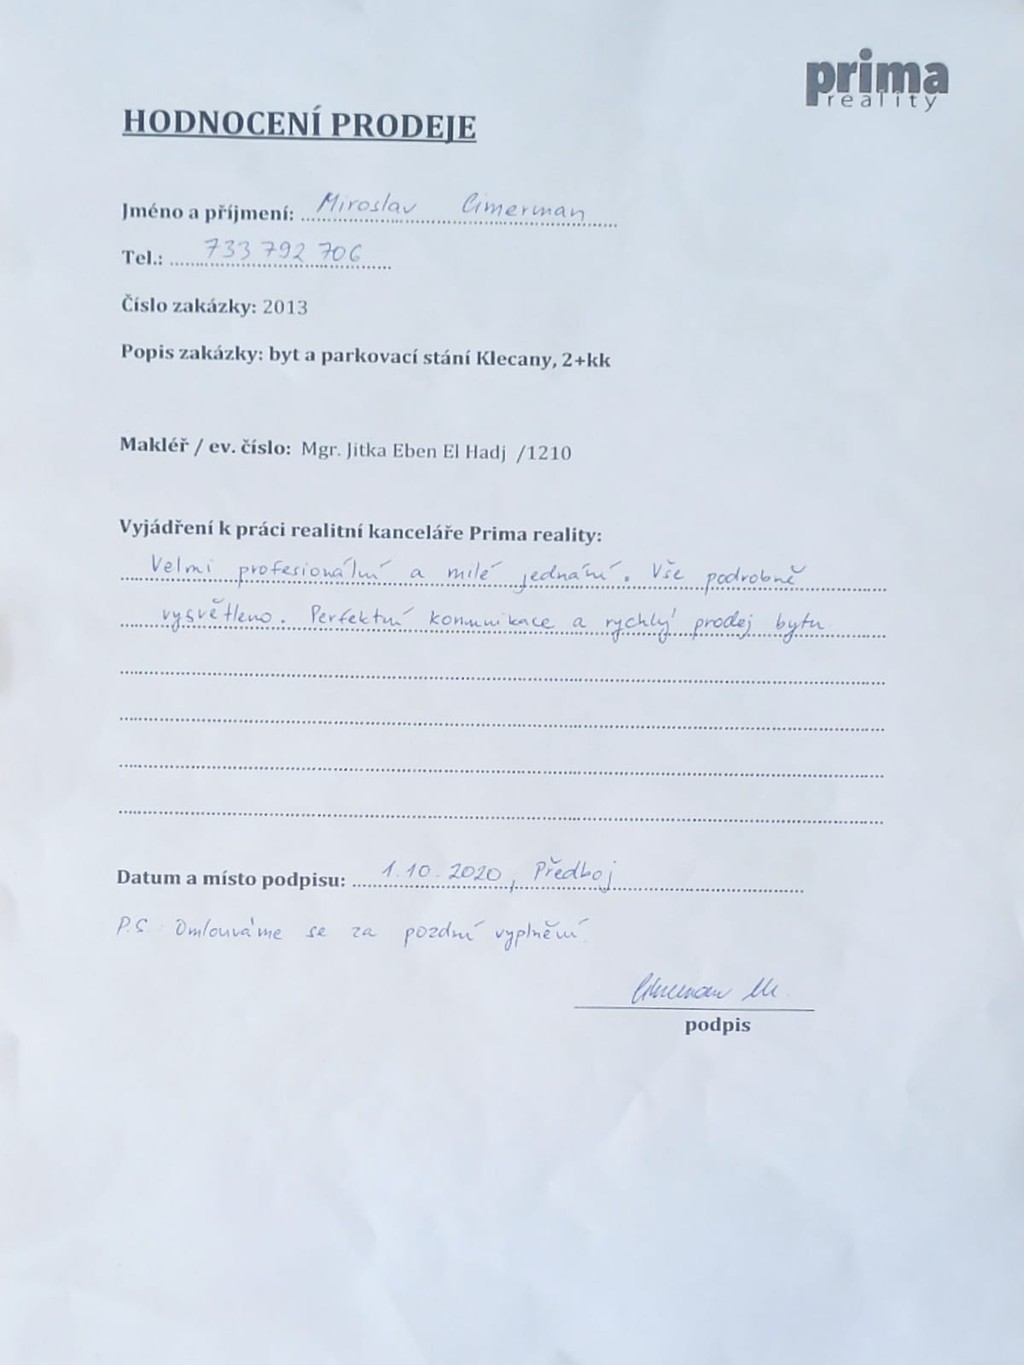 prima
reality
HODNOCENÍ PRODEJE
Jméno a příjmení: Miroslav Cimerman
Tel.: 733 792 706
Číslo zakázky: 2013
Popis zakázky: byt a parkovací stání Klecany, 2+kk
Makléř / ev. číslo: Mgr. Jitka Eben El Hadj /1210
Vyjádření k práci realitní kanceláře Prima reality:
Velmi profesionální a milé jednání. Vše podrobně
vysvětleno. Perfektní komunikace a rychlý prodej bytu
Datum a místo podpisu: 1.10.2020, Předboj
P.S. Omlouváme se za pozdní vyplnění.
Cimerman M.
podpis